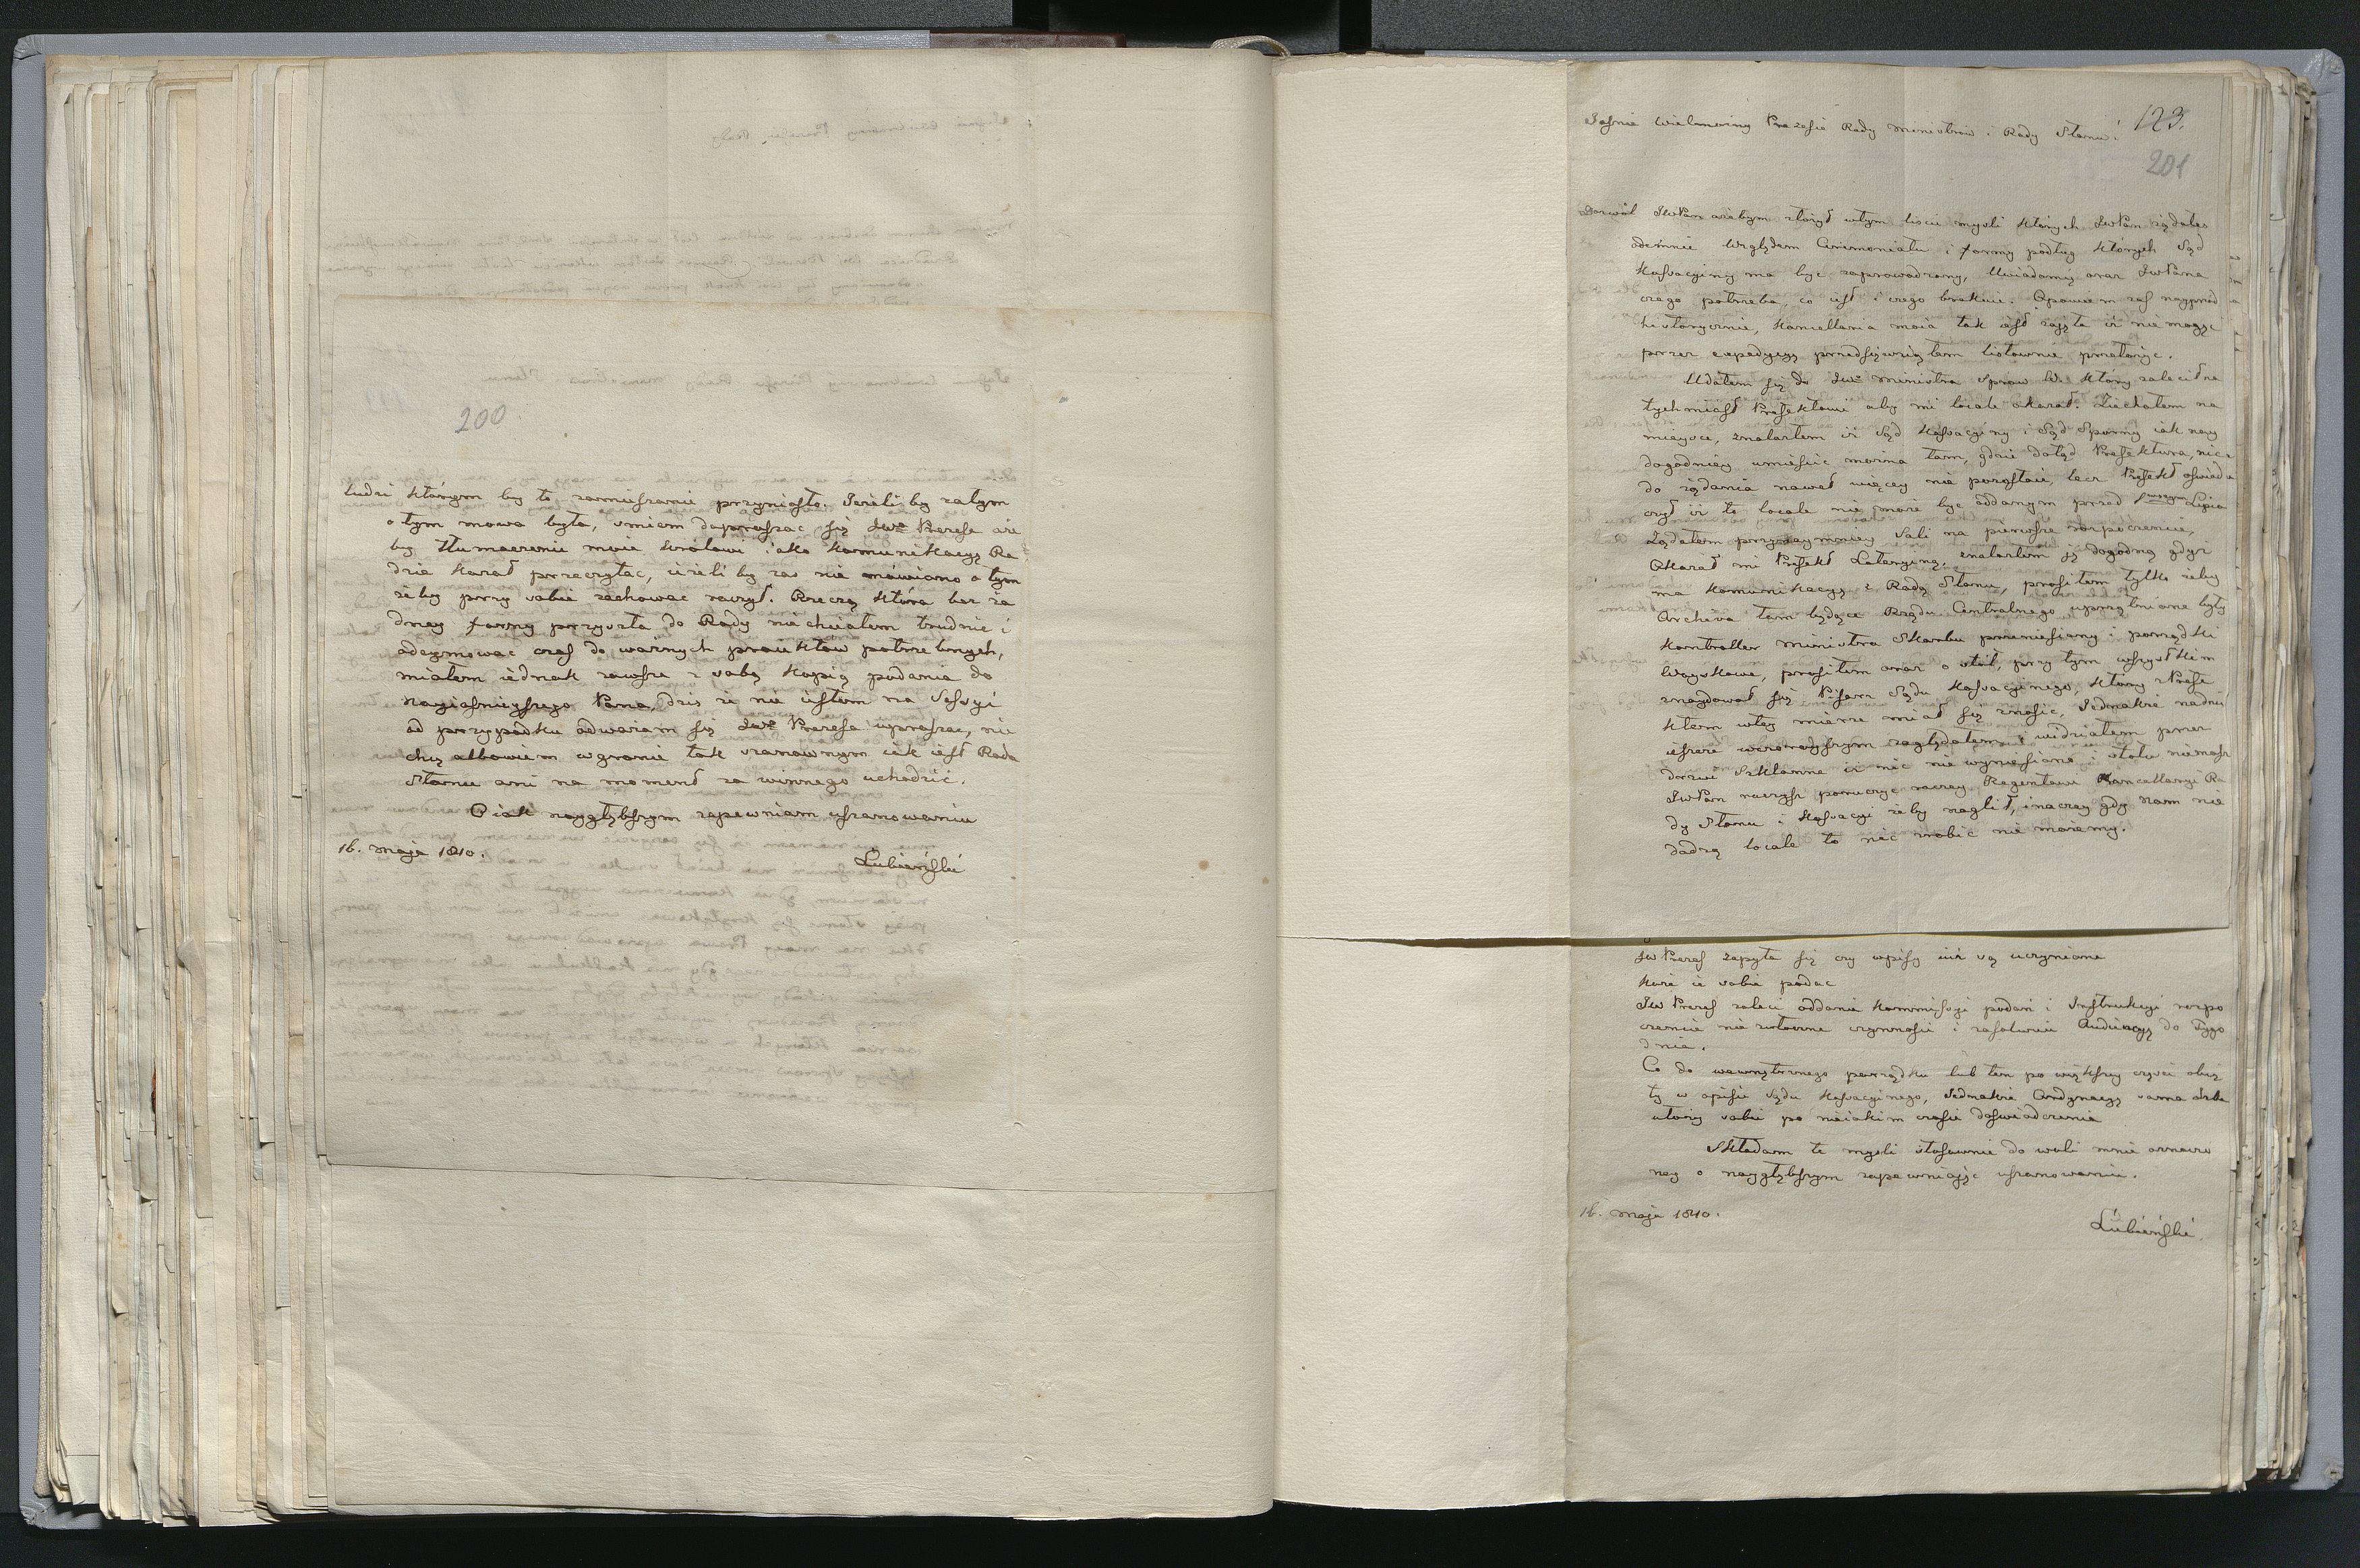 200
ludzi którym by to zamieszanie przyniosło. Jeżeli by zatym
o tym mowa była, smiem dopraszac się JWo Prezesa aże
by tłumaczenie moie Królowi iako kommunikacyą Ra
dzie kazał przeczytac, ieżeli by zas nie mówiono o tym
żeby przy sobie zachowac raczył. Rzeczą która bez ża
dney formy przyszła do Rady nie chciałem trudnic i
odeymowac czas do ważnych proiektow potrzebnych,
miałem iednak zawsze z sobą kopią podania do
Nayiasnieyszego Pana, dzis że nie iestem na Sessyi
od przypadku odważam się JWo Prezesa upraszac, nie
chcę albowiem w gronie tak szanownym iak iest Rada
Stanu ani na moment za winnego uchodzić.
O iak naygłębszym zapewniam uszanowaniu
16. Maja 1810.
Łubieński
Jasnie Wielmożny Prezesie Rady Ministrów i Rady Stanu!
123.
201
Dozwól JWPan ażebym złożył w tym liscie mysli których JWPan żądałes
odemnie względem Ceremoniału i formy podług których Sąd
Kassacyiny ma byc zaprowadzony, Uwiadomię oraz JWPana
czego potrzeba, co iest i czego brakuie. Opowiem zas nayprzod
historycznie, Kancellaria moia tak iest zajęta iż nie mogąc
przez expedycyą przedsięwziąłem listownie przełożyc.
Udałem się do JWo Ministra Spraw W. który zalecił na
tychmiast Prefektowi aby mi locale okazał. Ziechałem na
mieysce, znalazłem iż Sąd Kassacyiny i Sąd Sporny iak nay
dogodniey umieścic można tam, gdzie dotąd Prefektura, nic
do żądania nawet więcey nie pozostaie, lecz Prefekt oswiad
czył iż to locale nie może byc oddanym przed 1wszym Lipca
Żądałem przynaymniey Sali na pierwsze rozpoczęcie,
Okazał mi Prefekt Loteryiną, znalazłem ją dogodną gdyż
ma kommunikacyą z Radą Stanu, prosiłem tylko żeby
Archiva tam będące Rządu Centralnego uprzątnione były
Kontroller Ministra Skarbu przeniesiony i porządki
Woyskowe, prosiłem oraz o stół, przy tym wszystkim
znaydował się Pisarz Sądu Kassacyinego, który z Prefe
ktem w tey mierze miał się znosic, Jednakże na dniu
ieszcze wczorayszym zaglądałem i widziałem przez
drzwi Szklanne iż nic nie wyniesiono i stołu niemasz
JWPan raczysz poruczyc raczey Regentowi Kancellaryi Ra
dy Stanu i Kassacyi żeby naglił, inaczey gdy nam nie
dadzą locale to nic zrobic nie możemy.
JW Prezes zapyta się czy wpisy iuż są uczynione
każe ie sobie podac
JW Prezes zaleci oddanie Kommissyi podań i Instrukcyi rozpo
częcie nie zwłoczne czynnosci i zasolwuie Audiencyą do Tygo
dnia.
Co do wewnętrznego porządku lub ten po większey częsci obię
ty w opisie Sądu Kassacyinego, Jednakże Ordynacyą sama Izba
ułoży sobie po nieiakim czasie doswiadczenia
Składam te mysli stosownie do woli mnie oznaczo
ney o naygłębszym zapewniaiąc uszanowaniu.
16. Maja 1810.
Łubieński.